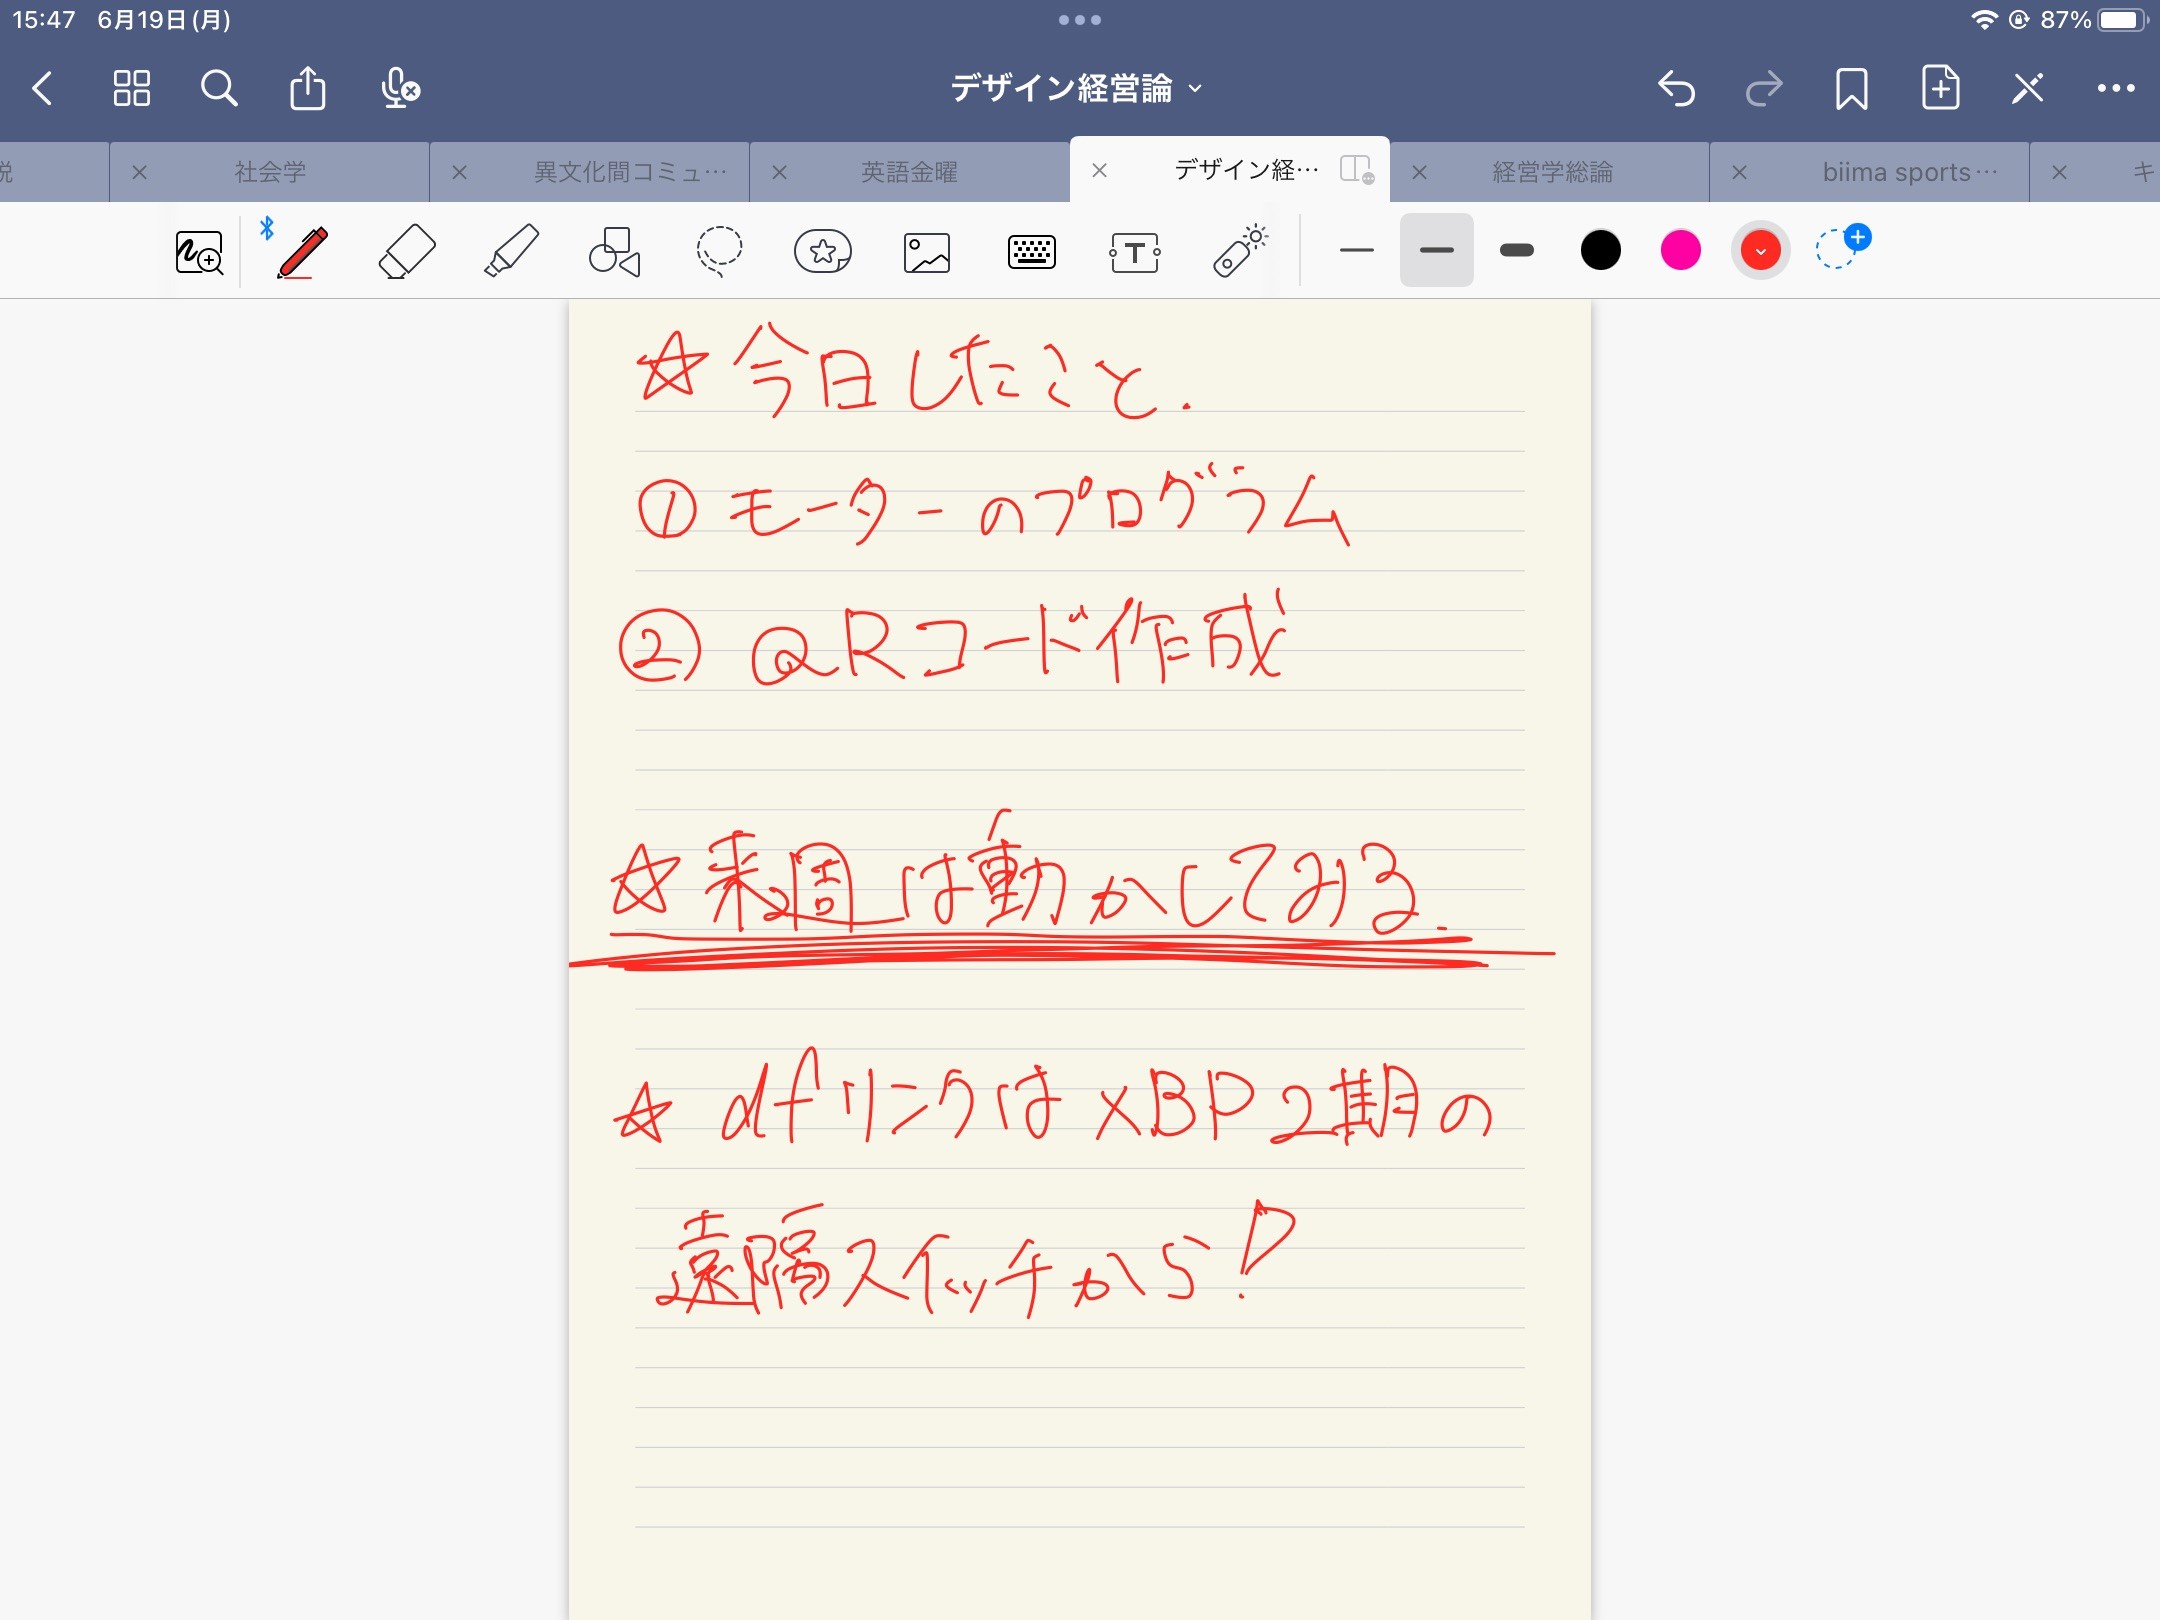 15:47 6月19日(月)
87%
デザイン経営論
説
社会学
異文化間コミュ…
英語金曜
デザイン経…
経営学総論
biima sports…
キ
T
☆今日したこと.
① モーターのプログラム
② QRコード作成
☆来週は動かしてみる.
☆ dfリンクはxBP2期の
遠隔スイッチから!